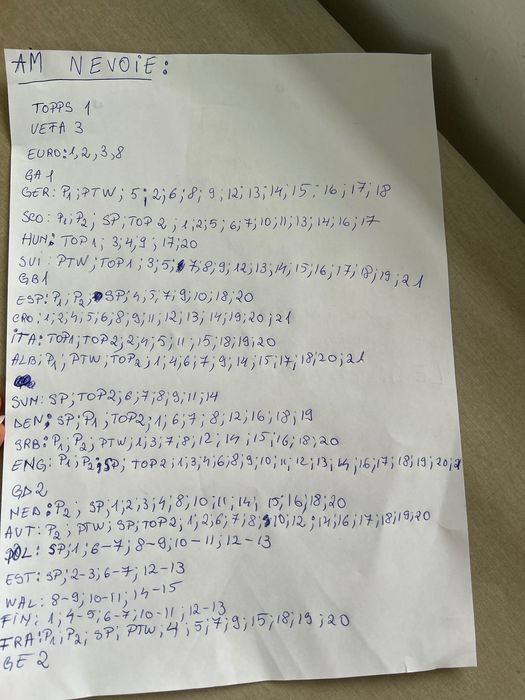 AM NEVOIE:
TOPPS 1
UEFA 3
EURO: 1,2,3,8
GA1
GER: P1; PTW; 5; 2; 6; 8; 9; 12; 13; 14; 15; 16; 17; 18
SCO: P1; P2; SP; TOP 2; 1; 2; 5; 6; 7; 10; 11; 13; 14; 16; 17
HUN: TOP 1; 3; 4; 9; 17; 20
SUI: PTW; TOP 1; 3; 5; 7; 8; 9; 12; 13; 14; 15; 16; 17; 18; 19; 21
GB1
ESP: P1; P2; SP; 4; 5; 7; 9; 10; 18; 20
CRO: 1; 2; 4; 5; 6; 8; 9; 11; 12; 13; 14; 19; 20; 21
ITA: TOP1; TOP2; 2; 4; 5; 11; 15; 18; 19; 20
ALB: P1; PTW; TOP2; 1; 4; 6; 7; 9; 14; 15; 17; 18; 20; 21
SVN: SP; TOP2; 6; 7; 8; 9; 11; 14
DEN: SP; P1; TOP2; 1; 6; 7; 8; 12; 16; 18; 19
SRB: P1; P2; PTW; 1; 3; 7; 8; 12; 14; 15; 16; 18; 20
ENG: P1; P2; SP; TOP2; 1; 3; 4; 6; 8; 9; 10; 11; 12; 13; 14; 16; 17; 18; 19; 20; 21
GD2
NED: P2; SP; 1; 2; 3; 4; 8; 10; 11; 14; 15; 16; 18; 20
AUT: P2; PTW; SP; TOP2; 1; 2; 6; 7; 8; 10; 12; 14; 16; 17; 18; 19; 20
POL: SP; 1; 6-7; 8-9; 10-11; 12-13
EST: SP; 2-3; 6-7; 12-13
WAL: 8-9; 10-11; 14-15
FIN: 1; 4-5; 6-7; 10-11; 12-13
FRA: P1; P2; SP; PTW; 4; 5; 7; 9; 15; 18; 19; 20
GE2